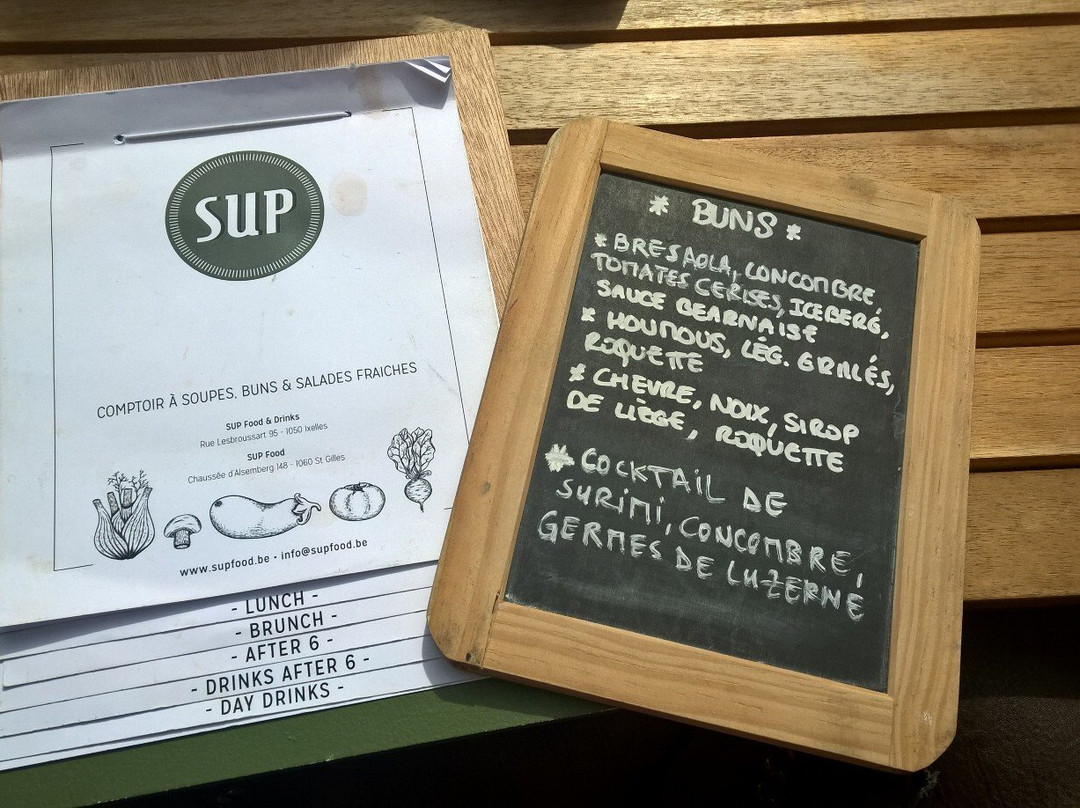 SUP
COMPTOIR À SOUPES, BUNS & SALADES FRAICHES
SUP Food & Drinks
Rue Lesbroussart 95 - 1050 Ixelles
SUP Food
Chaussée d'Alsemberg 148 - 1060 St Gilles
www.supfood.be • info@supfood.be
- LUNCH -
- BRUNCH -
- AFTER 6 -
- DRINKS AFTER 6 -
- DAY DRINKS -
* BUNS *
* BRESAOLA, CONCOMBRE,
TOMATES CERISES, ICEBERG,
SAUCE BEARNAISE
* HOUMOUS, LÉG. GRILLÉS,
ROQUETTE
* CHEVRE, NOIX, SIROP
DE LIÈGE, ROQUETTE
* COCKTAIL DE
SURIMI, CONCOMBRE,
GERMES DE LUZERNE